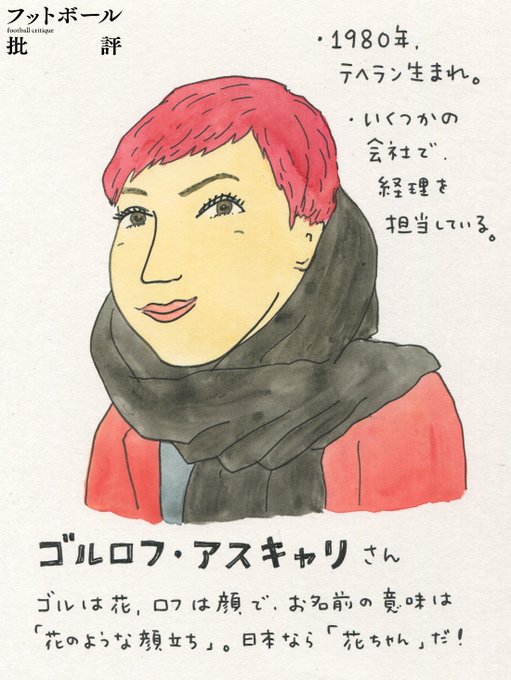 フットボール
football critique
批評
・1980年、
テヘラン生まれ。
・いくつかの
会社で、
経理を
担当している。
ゴルロフ・アスキャリ さん
ゴルは花、ロフは顔で、お名前の意味は
「花のような顔立ち」。日本なら「花ちゃん」だ!